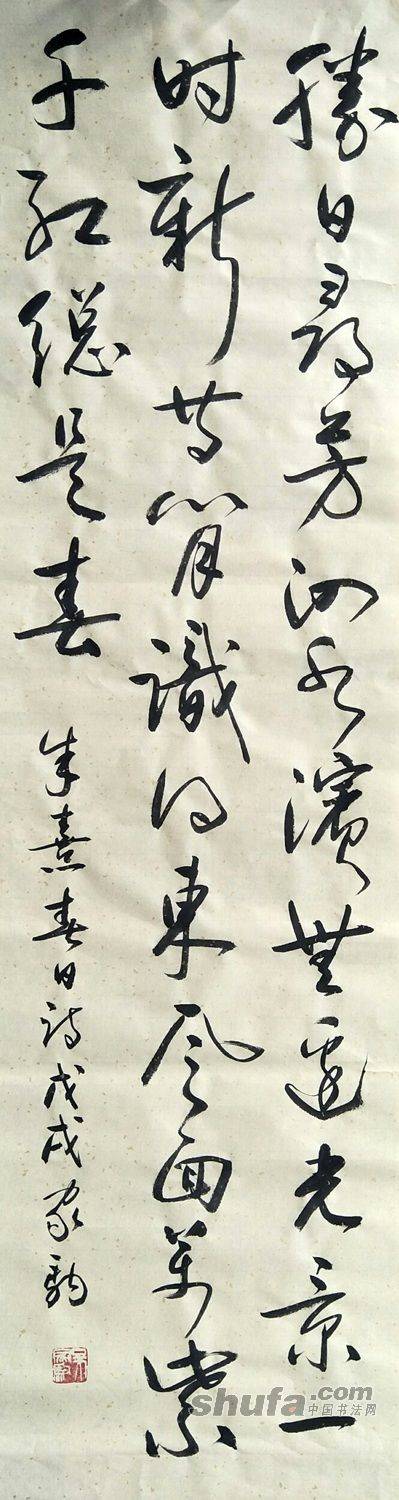 勝日尋芳泗水濱無邊光景一
时新等閒識得東风面萬紫
千红總是春
朱熹春日诗戊戌家驹
shufa.com
中国书法网